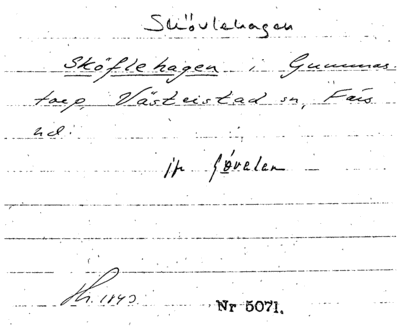 Skövlehagen
Sköflehagen i Gummas-
torp, Västerstad sn, Färs
hd.
jfr Gövelen
Hr. 1843
Nr 5071.